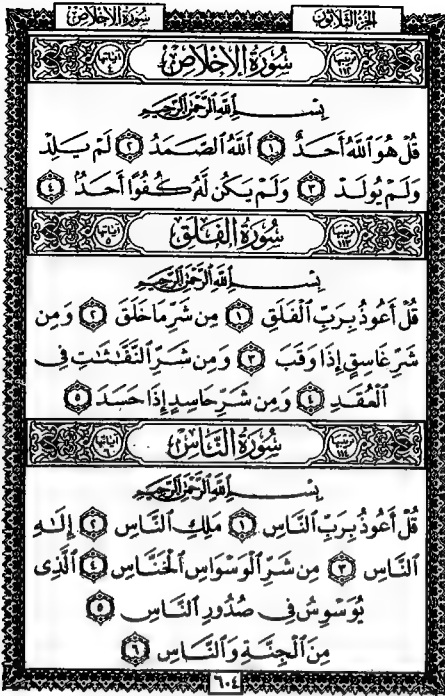 سُورَةُ الإِخْلَاصِ الجُزْءُ الثَّلَاثُونَ
ترتيبها ١١٢ سُورَةُ الإِخْلَاصِ آياتها ٤
بِسْمِ اللَّهِ الرَّحْمَٰنِ الرَّحِيمِ
قُلْ هُوَ اللَّهُ أَحَدٌ ١ اللَّهُ الصَّمَدُ ٢ لَمْ يَلِدْ
وَلَمْ يُولَدْ ٣ وَلَمْ يَكُن لَّهُ كُفُوًا أَحَدٌ ٤
ترتيبها ١١٣ سُورَةُ الفَلَقِ آياتها ٥
بِسْمِ اللَّهِ الرَّحْمَٰنِ الرَّحِيمِ
قُلْ أَعُوذُ بِرَبِّ الْفَلَقِ ١ مِن شَرِّ مَا خَلَقَ ٢ وَمِن
شَرِّ غَاسِقٍ إِذَا وَقَبَ ٣ وَمِن شَرِّ النَّفَّٰثَٰتِ فِى
الْعُقَدِ ٤ وَمِن شَرِّ حَاسِدٍ إِذَا حَسَدَ ٥
ترتيبها ١١٤ سُورَةُ النَّاسِ آياتها ٦
بِسْمِ اللَّهِ الرَّحْمَٰنِ الرَّحِيمِ
قُلْ أَعُوذُ بِرَبِّ النَّاسِ ١ مَلِكِ النَّاسِ ٢ إِلَٰهِ
النَّاسِ ٣ مِن شَرِّ الْوَسْوَاسِ الْخَنَّاسِ ٤ الَّذِى
يُوَسْوِسُ فِى صُدُورِ النَّاسِ ٥
مِنَ الْجِنَّةِ وَالنَّاسِ ٦
٦٠٤